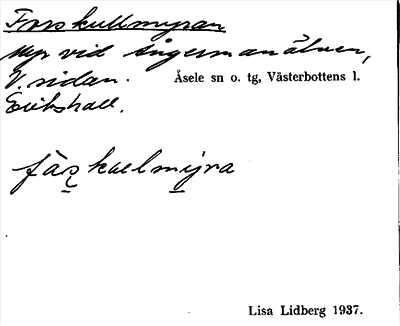 Forskullmyran
myr vid Ångermanälven,
V. sidan. Åsele sn o. tg, Västerbottens l.
Erikshall.
Lisa Lidberg 1937.